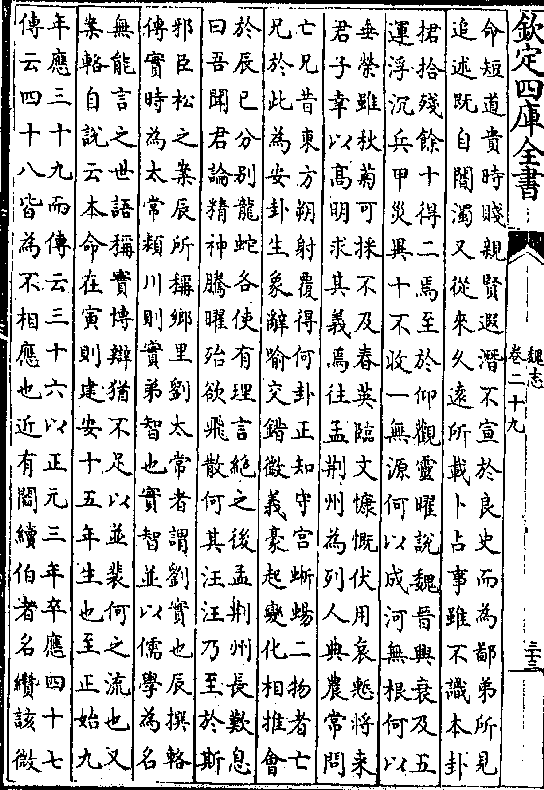 欽定四庫全書
魏志
卷二十九
三十三
命短道貴時賤親賢遐潛不宣於良史而為鄙弟所見
追述既自闇濁又從來久遠所載卜占事雖不識本卦
捃拾殘餘十得二焉至於仰觀靈曜說魏晉興衰及五
運浮沉兵甲災異十不收一無源何以成河無根何以
垂榮雖秋菊可採不及春英臨文慷慨伏用哀慙將來
君子幸以髙明求其義焉往孟荆州為列人典農常問
亡兄昔東方朔射覆得何卦正知守宫蜥蜴二物者亡
兄於此為安卦生象辭喻交錯微義豪起變化相推會
於辰巳分別龍蛇各使有理言絶之後孟荆州長歎息
曰吾聞君論精神騰曜殆欲飛散何其汪汪乃至於斯
邪臣松之案辰所稱鄉里劉太常者謂劉實也辰撰輅
傳實時為太常潁川則實弟智也實智並以儒學為名
無能言之世語稱實博辯猶不足以並裴何之流也又
案輅自說云本命在寅則建安十五年生也至正始九
年應三十九而傳云三十六以正元三年卒應四十七
傳云四十八皆為不相應也近有閻續伯者名纉該微